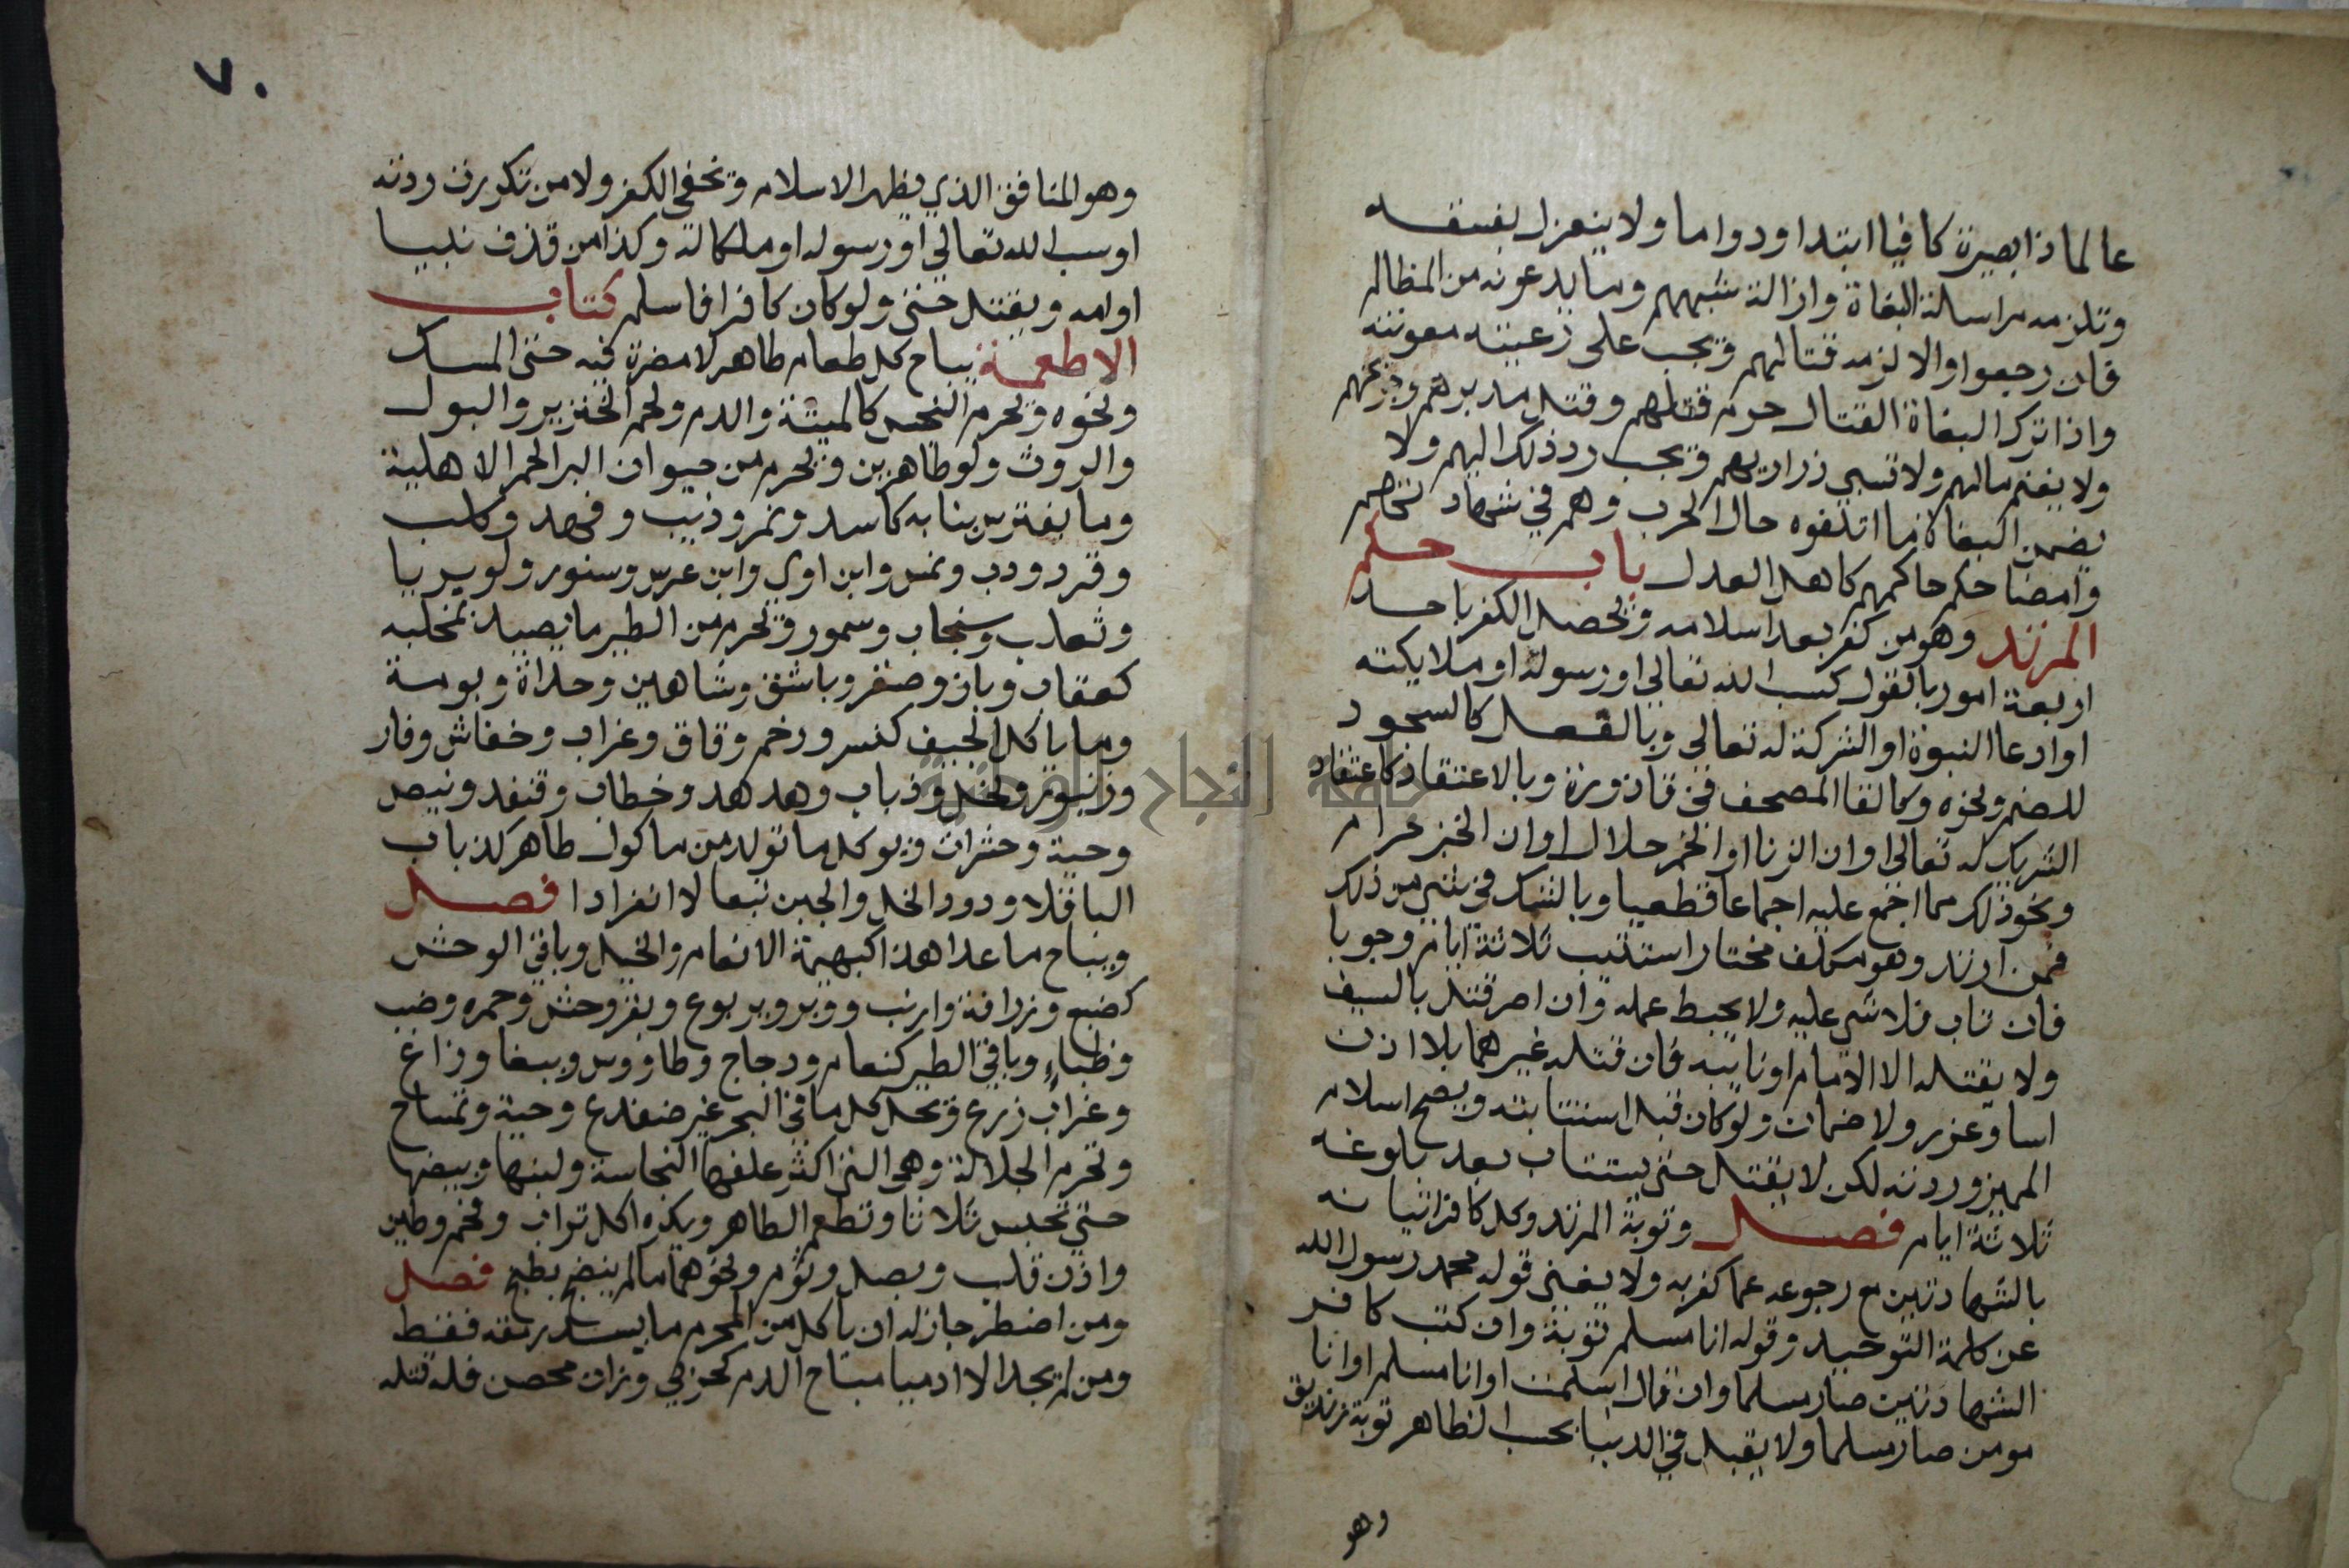 عالما ذا بصيرة كافيا ابتدا ودواما ولا ينعزل بفسقه
وتلزمه مراسلة البغاة وازالة شبههم وما يدعونه من المظالم
فان رجعوا والا لزمه قتالهم ويجب على رعيته معونته
واذا ترك البغاة القتال حرم قتلهم وقتل مدبرهم وجريحهم
ولا يغنم مالهم ولا تسبى ذراريهم ويجب رد ذلك اليهم ولا
يضمن البغاة ما اتلفوه حال الحرب وهم في شهادتهم
وامضا حكم حاكمهم كاهل العدل باب حكم
المرتد وهو من كفر بعد اسلامه ويحصل الكفر باحد
اربعة امور بالقول كسب الله تعالى او رسوله او ملايكته
او ادعا النبوة او الشركة له تعالى وبالفعل كالسجود
للصنم ونحوه وكالقا المصحف في قاذورة وبالاعتقاد كاعتقاد
الشريك له تعالى او ان الزنا او الخمر حلال او ان الخبز حرام
ونحو ذلك مما اجمع عليه اجماعا قطعيا وبالشك في شي من ذلك
فمن ارتد وهو مكلف مختار استتيب ثلاثة ايام وجوبا
فان تاب فلا شي عليه ولا يحبط عمله وان اصر قتل بالسيف
ولا يقتله الا الامام او نايبه فان قتله غيرهما بلا اذن
اسا وعزر ولا ضمان ولو كان قبل استتابته ويصح اسلام
المميز وردته لكن لا يقتل حتى يستتاب بعد بلوغه
ثلاثة ايام فصل وتوبة المرتد وكل كافر اتيانه
بالشهادتين مع رجوعه عما كفر به ولا يغني قوله محمد رسول الله
عن كلمة التوحيد وقوله انا مسلم توبة وان كتب كافر
الشهادتين صار مسلما وان قال اسلمت او انا مسلم او انا
مومن صار مسلما ولا يقبل في الدنيا بحسب الظاهر توبة زنديق
وهو
٧٠
وهو المنافق الذي يظهر الاسلام ويخفي الكفر ولا من تكررت ردته
او سب الله تعالى او رسوله او ملكا له وكذا من قذف نبيا
او امه ويقتل حتى ولو كان كافرا فاسلم كتاب
الاطعمة يباح كل طعام طاهر لا مضرة فيه حتى المسك
ونحوه ويحرم النجس كالميتة والدم ولحم الخنزير والبول
والروث ولو طاهرين ويحرم من حيوان البر الحمر الاهلية
وما يفترس بنابه كاسد ونمر وذيب وفهد وكلب
وقرد ودب ونمس وابن اوى وابن عرس وسنور ولو بريا
وثعلب وسنجاب وسمور ويحرم من الطير ما يصيد بمخلبه
كعقاب وباز وصقر وباشق وشاهين وحداة وبومة
وما ياكل الجيف كنسر ورخم وقاق وغراب وخفاش وفار
وزنبور ونحل وذباب وهدهد وخطاف وقنفد ونيص
وحية وحشرات ويوكل ما تولد من ماكول طاهر كذباب
الباقلا ودود الخل والجبن تبعا لا انفرادا فصل
ويباح ما عدا هذا كبهيمة الانعام والخيل وباقي الوحش
كضبع وزرافة وارنب ووبر ويربوع وبقر وحش وحمره وضب
وظباء وباقي الطير كنعام ودجاج وطاووس وببغا وزاغ
وغراب زرع ويحل كل ما في البحر غير ضفدع وحية وتمساح
وتحرم الجلالة وهي التي اكثر علفها النجاسة ولبنها وبيضها
حتى تحبس ثلاثا وتطعم الطاهر ويكره اكل تراب وفحم وطين
واذن قلب وبصل وثوم ونحوهما مالم ينضج بطبخ فصل
ومن اضطر جاز له ان ياكل من المحرم ما يسد رمقه فقط
ومن لم يجد الا ادميا مباح الدم كحربي وزان محصن فله قتله
جامعة النجاح الوطنية